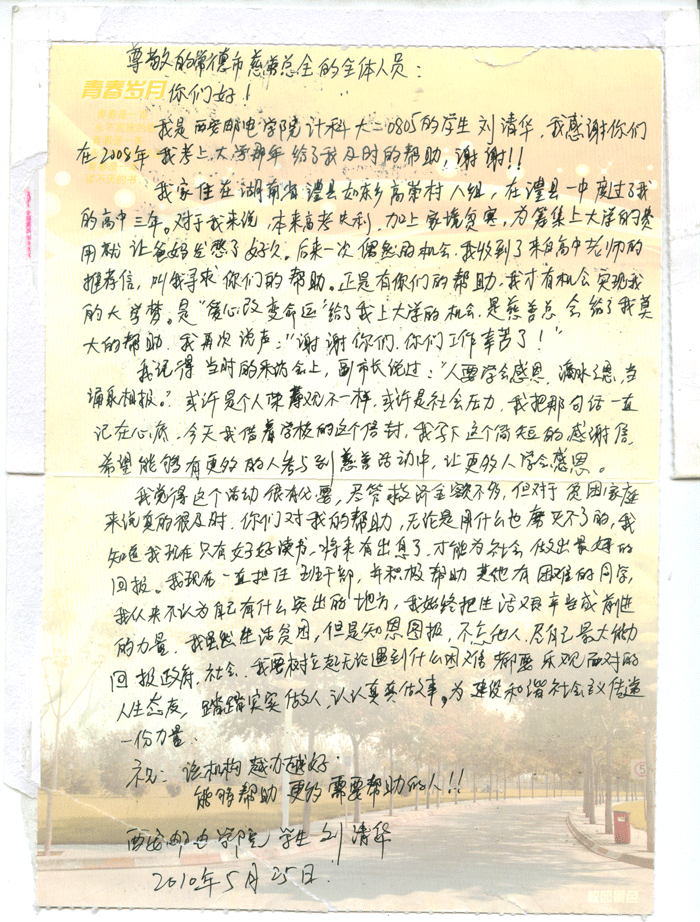 尊敬的常德市慈善总会的全体人员：
青春岁月
你们好！
我是西安邮电学院计科大二0805的学生刘清华，我感谢你们
在2008年我考上大学那年给了我及时的帮助，谢谢！！
我家住在湖南省澧县如东乡高荣村八组，在澧县一中度过了我
的高中三年。对于我来说，本来高考失利，加上家境贫寒，为筹集上大学的费
用就让爸妈发愁了好久。后来一次偶然的机会，我收到了来自高中老师的
推荐信，叫我寻求你们的帮助。正是有你们的帮助，我才有机会实现我
的大学梦。是“爱心改变命运”给了我上大学的机会，是慈善总会给了我莫
大的帮助，我再次说声：“谢谢你们，你们工作辛苦了！”
我记得当时的采访会上，副市长说过：“人要学会感恩，滴水之恩，当
涌泉相报。”或许是个人荣辱观不一样，或许是社会压力，我把那句话一直
记在心底，今天我借着学校的这个信封，我写下这个简短的感谢信，
希望能够有更多的人参与到慈善活动中，让更多人学会感恩。
我觉得这个活动很有必要，尽管救济金额不多，但对于贫困家庭
来说真的很及时，你们对我的帮助，无论是用什么也磨灭不了的，我
知道我现在只有好好读书，将来有出息了，才能为社会做出最好的
回报。我现在一直担任班干部，并积极帮助其他有困难的同学，
我从来不认为自己有什么突出的地方，我始终把生活艰辛当成前进
的力量，我虽然生活贫困，但是知恩图报，不忘他人，尽自己最大能力
回报政府、社会，我要树立起无论遇到什么困难都要乐观面对的
人生态度，踏踏实实做人，认认真真做事，为建设和谐社会主义传递
一份力量。
祝：该机构越办越好
能够帮助更多需要帮助的人！！
西安邮电学院学生刘清华
2010年5月25日
校园景色